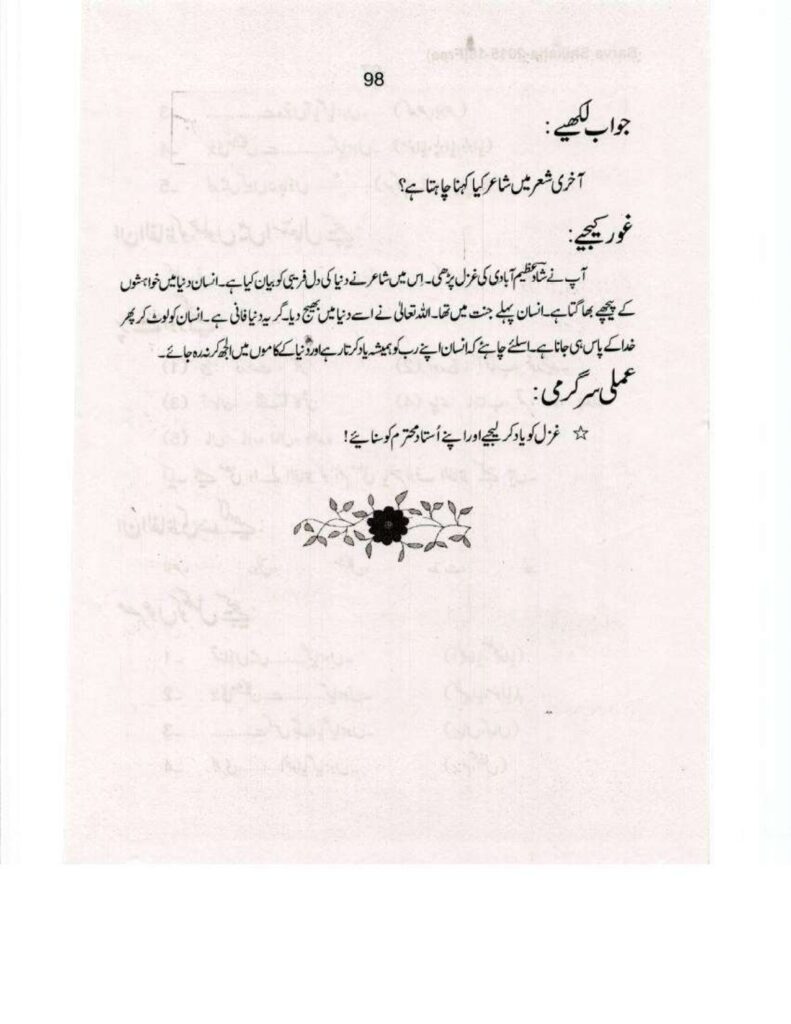 98
جواب لکھیے :
آخری شعر میں شاعر کیا کہنا چاہتا ہے؟
غور کیجیے :
آپ نے شاد عظیم آبادی کی غزل پڑھی۔ اِس میں شاعر نے دنیا کی دل فریبی کو بیان کیا ہے۔ انسان دنیا میں خواہشوں
کے پیچھے بھاگتا ہے۔ انسان پہلے جنت میں تھا۔ اللہ تعالیٰ نے اسے دنیا میں بھیج دیا۔ گر یہ دنیا فانی ہے۔ انسان کو لوٹ کر پھر
خدا کے پاس ہی جانا ہے۔ اسلئے چاہئے کہ انسان اپنے رب کو ہمیشہ یاد کرتا رہے اور دنیا کے کاموں میں الجھ کر نہ رہ جائے۔
عملی سرگرمی :
☆ غزل کو یاد کر لیجیے اور اپنے اُستاد محترم کو سنایئے!